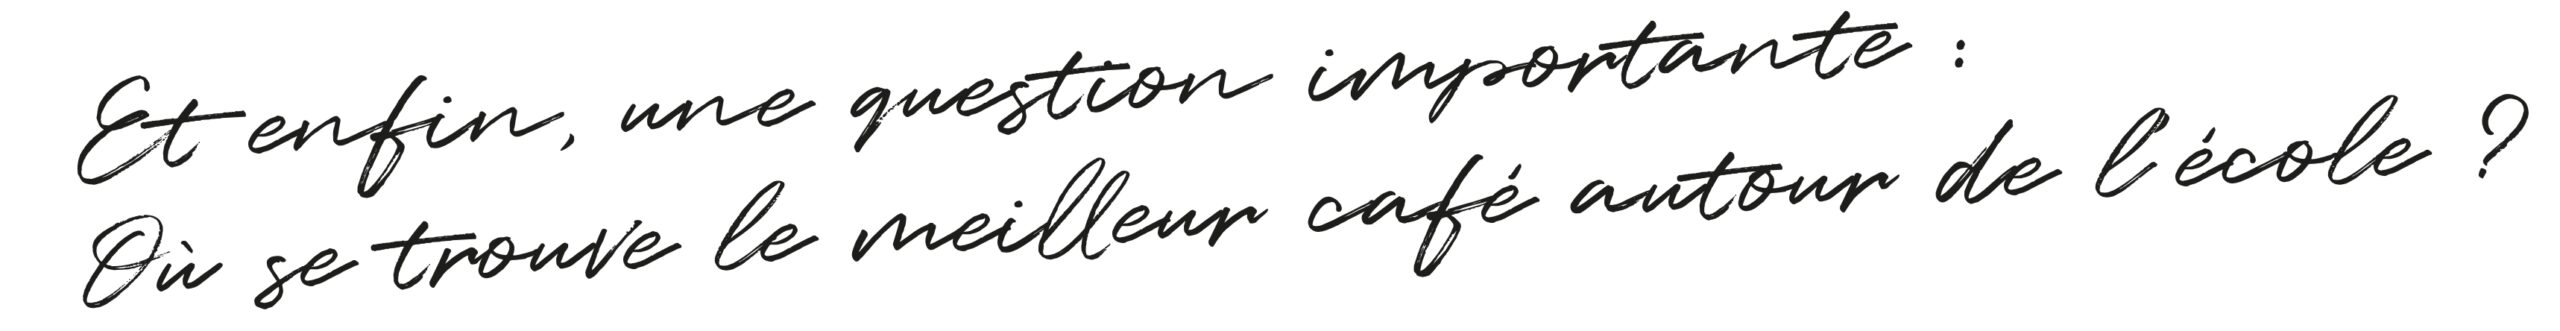 Et enfin, une question importante :
Où se trouve le meilleur café autour de l'école ?